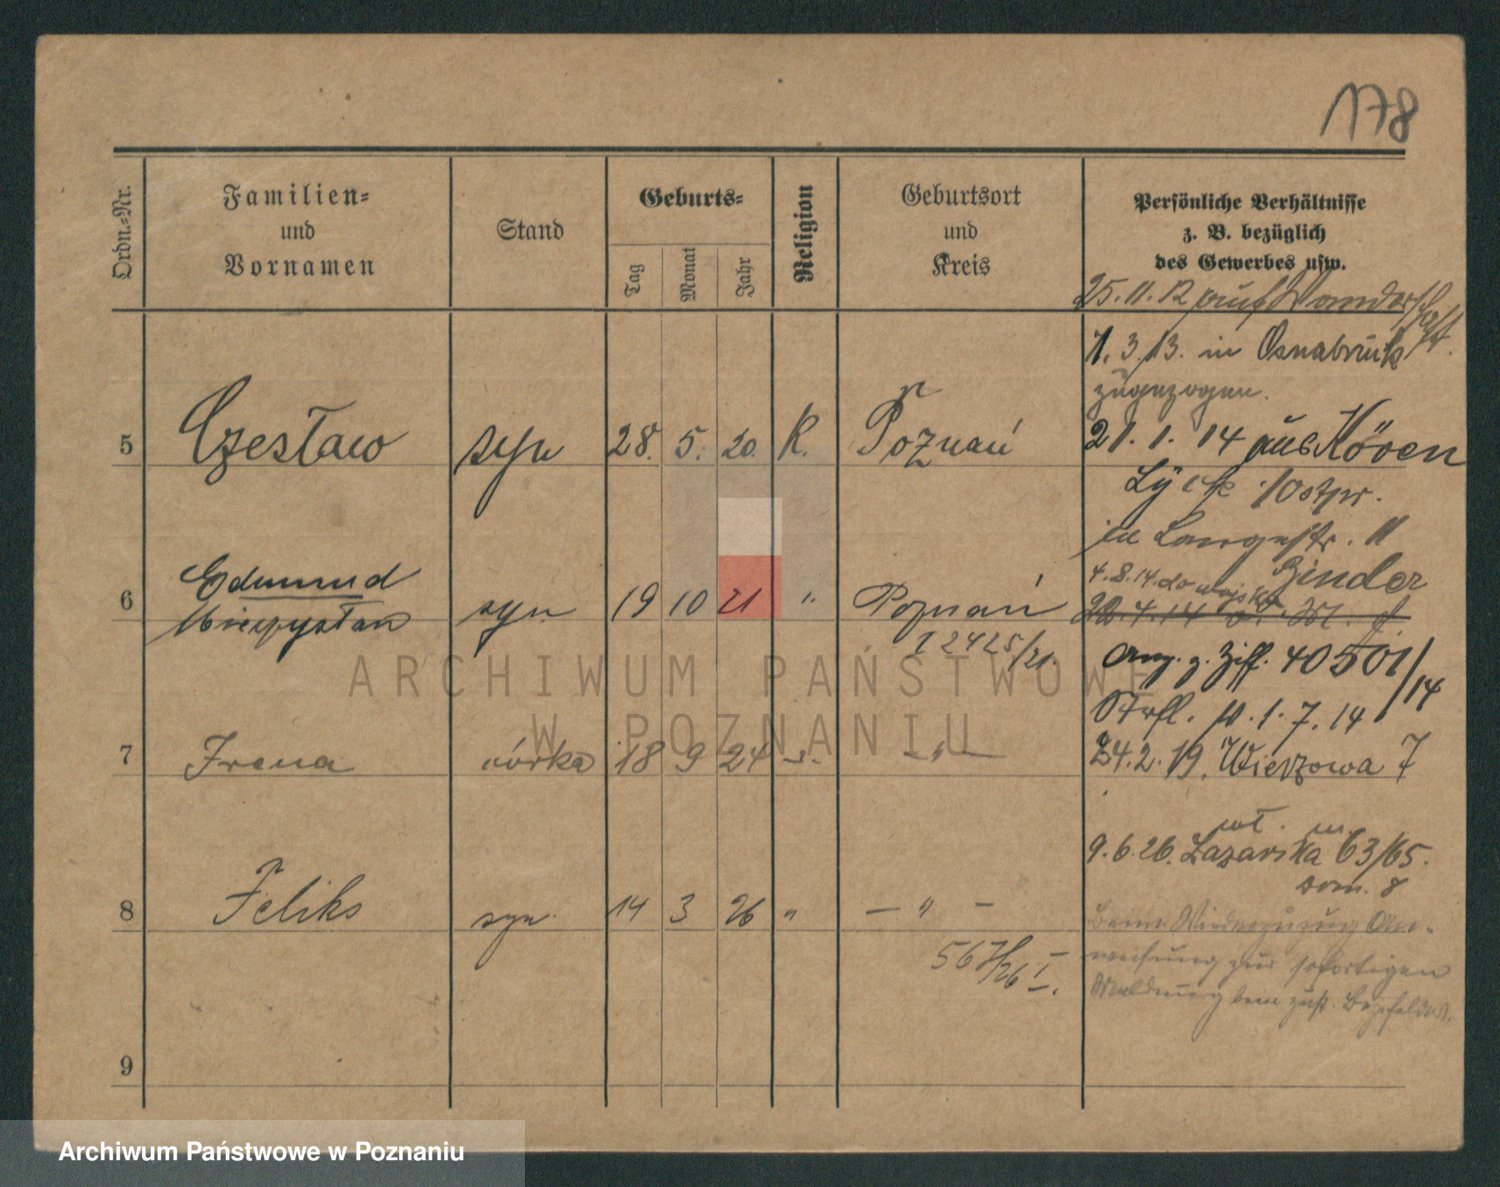 178
Ordn.-Nr.
Familien-
und
Vornamen
Stand
Geburts-
Tag
Monat
Jahr
Religion
Geburtsort
und
Kreis
Persönliche Verhältnisse
z. B. bezüglich
des Gewerbes usw.
25.11.12 auf Wanderschaft.
1.3.13. in Osnabrück
zugezogen.
5 Czesław syn 28. 5. 20. K. Poznań
21.1.14 aus
Lyck /Ostpr.
in Langestr. 11
Binder
4.8.14.
6 Edmund syn 19 10 21 " Poznań
Mieczysław
I 2425/21.
Ang. z. Ziff. 40501/14
1.7.14
7 Irena córka 18 9 24 -"- -"-
24.2.19. Wierzowa 7
wł. m.
9.6.26. Łazarska 63/65.
Dom. 8
8 Feliks syn 14 3 26 " - " -
567/26 I.
Beim Wiederzuzug An-
weisung zur sofortigen
Meldung beim zust.
9
ARCHIWUM PAŃSTWOWE
W POZNANIU
Archiwum Państwowe w Poznaniu